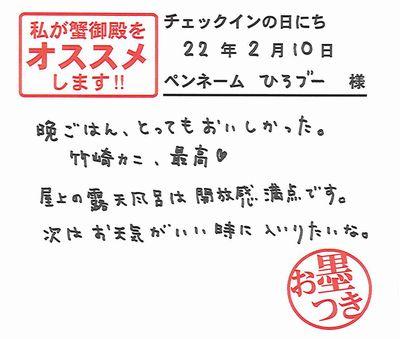 私が蟹御殿を
オススメ
します!!
チェックインの日にち
22年2月10日
ペンネーム ひろブー 様
晩ごはん、とってもおいしかった。
竹崎カニ、最高♥
屋上の露天風呂は開放感満点です。
次はお天気がいい時に入りたいな。
お墨つき